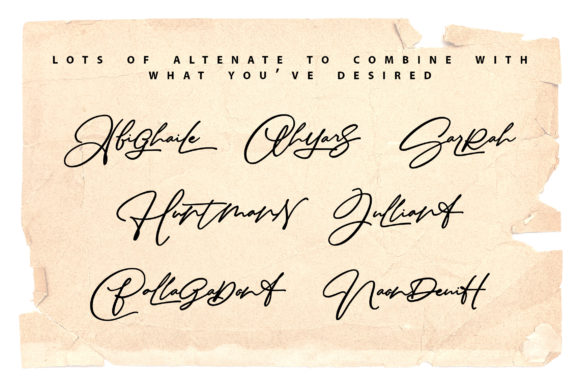 LOTS OF ALTENATE TO COMBINE WITH
WHAT YOU'VE DESIRED
Abighaile Ahyars Sarrah
Huntmann Julliant
Pollagadont Naondewitt